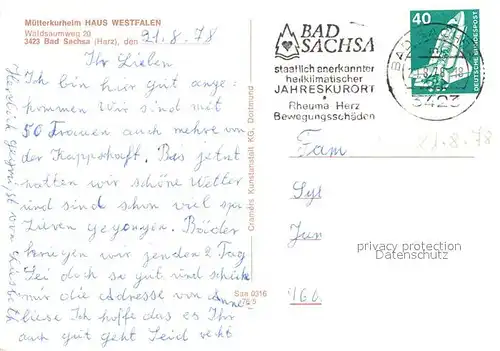 Mütterkurheim HAUS WESTFALEN
Waldsaumweg 20
3423 Bad Sachsa (Harz), den 21.8.78
Ihr Lieben
Ich bin hier gut ange=
kommen Wir sind mit
50 Frauen auch mehre von
der Kapperhaft. Bas jetzt
hatten wir schöne Wetter
und sind schon viel spa
zieren gegangen. Bäder
kriegen wir jenden 2 Tag
Sei doch so gut und schicke
mir die addresse von Anne=
liese Ich hoffe das es Ihr
auch gut geht Seid recht
Herzlich gegrüßt von
Cramers Kunstanstalt KG, Dortmund
Saa 0316
78/9
BAD
SACHSA
staatlich anerkannter
heilklimatischer
JAHRESKURORT
Rheuma Herz
Bewegungsschäden
40
DEUTSCHE BUNDESPOST
3423
21.8.78
Fam
Syl
Jun
privacy protection
Datenschutz